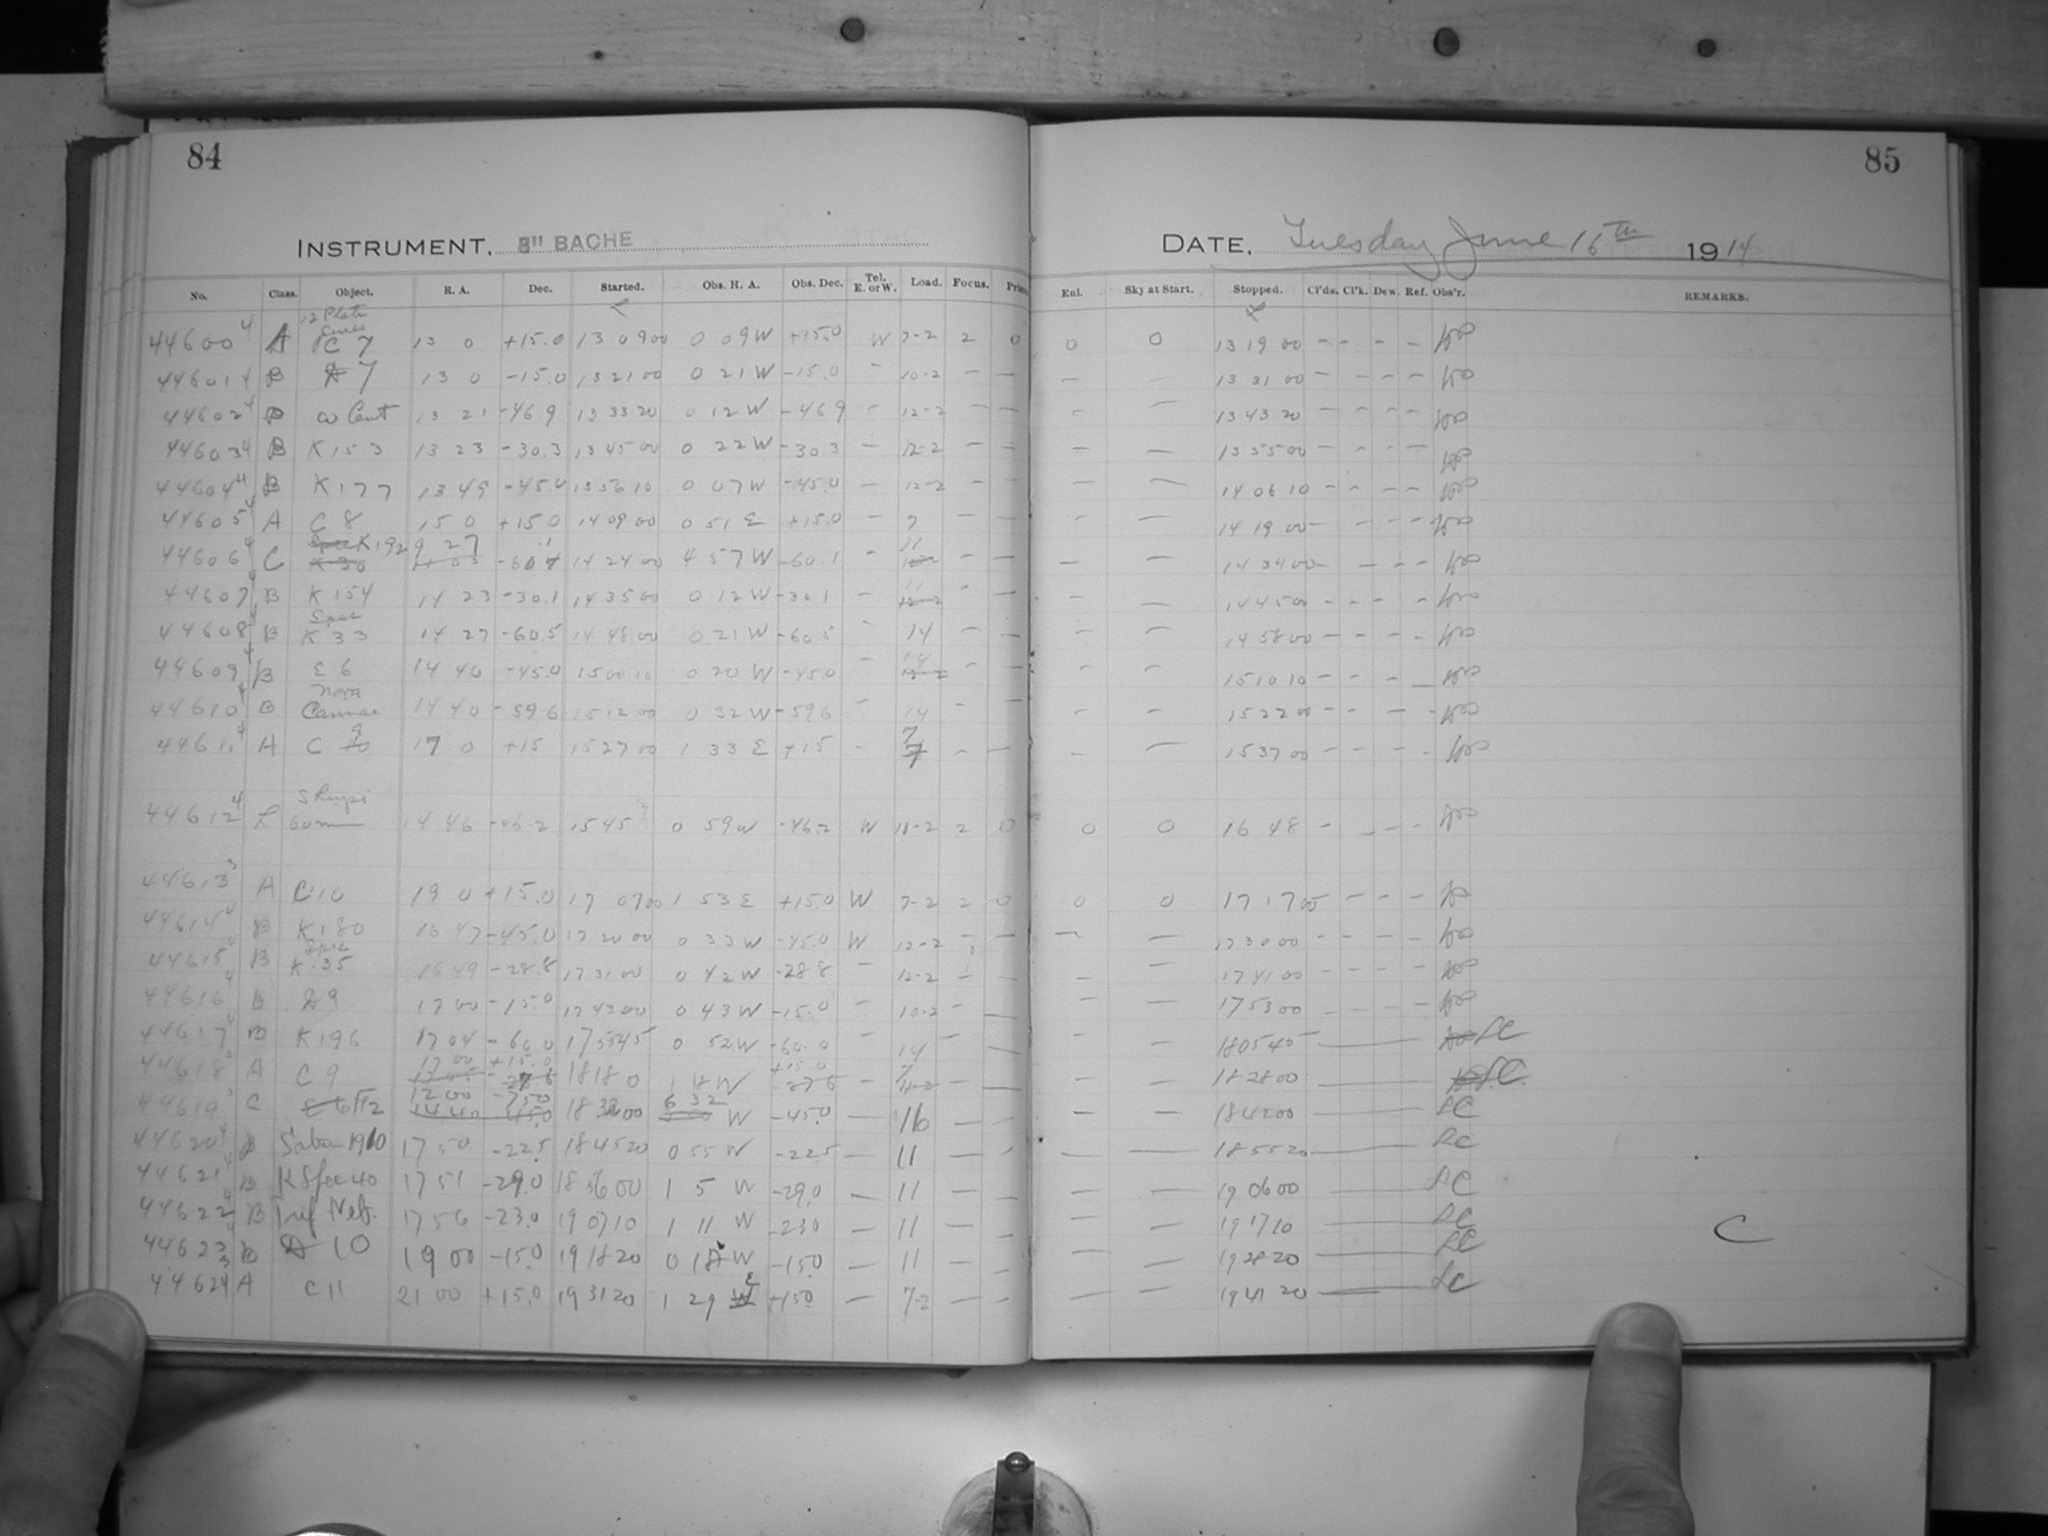 84
85
INSTRUMENT, 8" BACHE
DATE, Tuesday June 16th 1914
No. Class. Object. R. A. Dec. Started. Obs. H. A. Obs. Dec. Tel. E. or W. Load. Focus. Enl. Sky at Start. Stopped. Cl'ds. Cl'k. Dew. Ref. Obs'r. REMARKS.
12 Plate
44600 4 A C 7 13 0 +15.0 13 09 00 0 09 W +15.0 W 7-2 2 0 0 0 13 19 00 - - - -
44601 4 B D 7 13 0 -15.0 13 21 00 0 21 W -15.0 - 10-2 - - - - 13 31 00 - - - -
44602 4 B ω Cent 13 21 -46 9 13 33 20 0 12 W -46 9 - 12-2 - - - - 13 43 20 - - - -
44603 4 B K 153 13 23 -30.3 13 45 00 0 22 W -30 3 - 12-2 - - - - 13 55 00 - - - -
44604 4 B K 177 13 49 -45.0 13 56 10 0 07 W -45.0 - 12-2 - - - - 14 06 10 - - - -
44605 4 A C 8 15 0 +15.0 14 09 00 0 51 E +15.0 - 7 - - - - 14 19 00 - - - -
K 192 9 27 11
44606 4 C -60.1 14 24 00 4 57 W -60.1 - - - - - 14 34 00 - - - -
44607 4 B K 154 14 23 -30.1 14 35 00 0 12 W -30 1 - 11 - - - - 14 45 00 - - - -
Spec
44608 4 B K 33 14 27 -60.5 14 48 00 0 21 W -60 5 - 14 - - - - 14 58 00 - - - -
44609 4 B E 6 14 40 -45.0 15 00 10 0 20 W -45.0 - 14 - - - - 15 10 10 - - - -
Nova
44610 4 B 14 40 -59 6 15 12 00 0 32 W -59 6 - 14 - - - - 15 22 00 - - - -
44611 4 A C 9 17 0 +15 15 27 00 1 33 E +15 - 7 - - - - 15 37 00 - - - -
44612 4 60 min 14 46 -46.2 15 45 0 59 W -46.2 W 11-2 2 0 0 0 16 48 - - - -
44613 3 A C 10 19 0 +15.0 17 07 00 1 53 E +15.0 W 7-2 2 0 0 0 17 17 00 - - - -
44614 4 B K 180 16 47 -45.0 17 20 00 0 33 W -45.0 W 12-2 - - - - 17 30 00 - - - -
Spec
44615 4 B K 35 16 49 -28.8 17 31 00 0 42 W -28 8 - 12-2 - - - - 17 41 00 - - - -
44616 4 B D 9 17 00 -15.0 17 43 00 0 43 W -15.0 - 10-2 - - - - 17 53 00 - - - -
44617 4 B K 196 17 04 -60 0 17 55 45 0 52 W -60.0 - 14 - - - 18 05 45 LC
17 00 +15.0 +15.0 7
44618 3 A C 9 18 18 0 1 18 W - - - - 18 28 00 LC
12 00 -75.0 6 32
44619 3 C 18 32 00 W -45.0 - 16 - - - - 18 42 00 LC
44620 4 B Saturn 1910 17 50 -22.5 18 45 20 0 55 W -22.5 - 11 - - - - 18 55 20 LC
44621 4 B K Spec 40 17 51 -29.0 18 56 00 1 5 W -29.0 - 11 - - - - 19 06 00 LC
44622 4 B Trif Neb. 17 56 -23.0 19 07 10 1 11 W -23.0 - 11 - - - - 19 17 10 LC
44623 B D 10 19 00 -15.0 19 18 20 0 18 W -15.0 - 11 - - - - 19 28 20 LC
44624 3 A C 11 21 00 +15.0 19 31 20 1 29 E +15.0 - 7-2 - - - - 19 41 20 LC
C